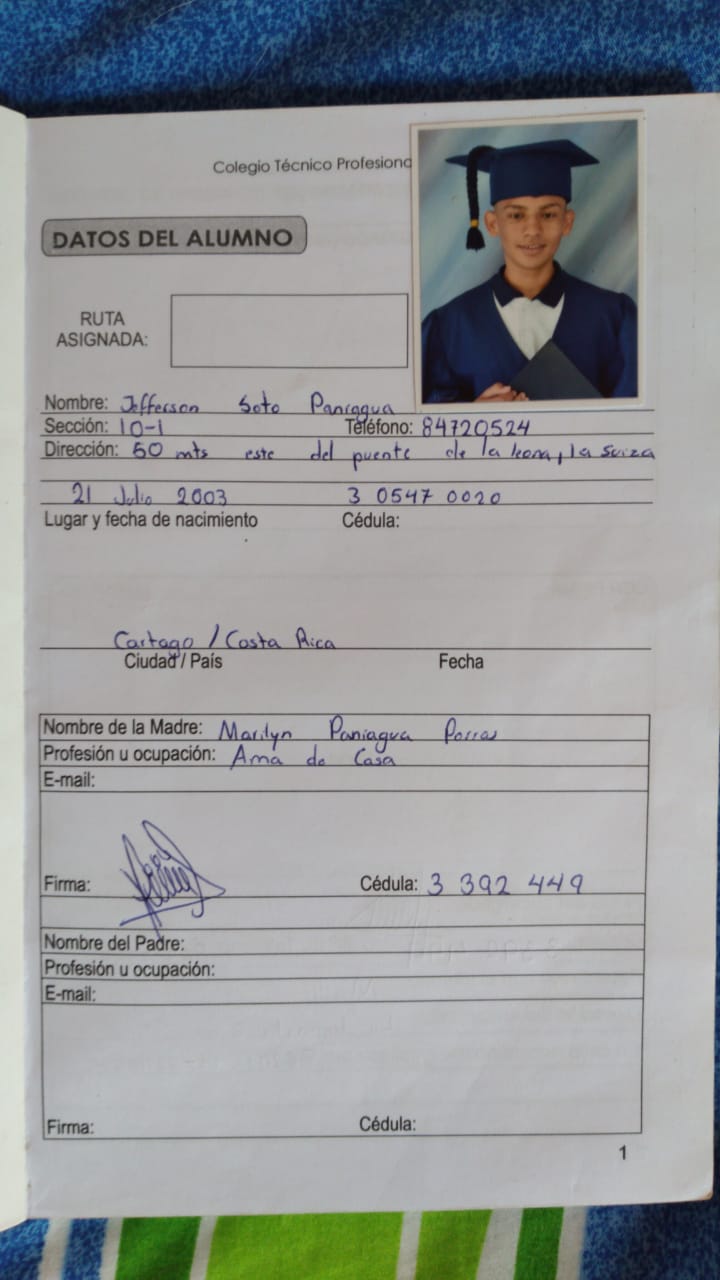 Colegio Técnico Profesional
DATOS DEL ALUMNO
RUTA
ASIGNADA:
Nombre: Jefferson Soto Paniagua
Sección: 10-1 Teléfono: 84720524
Dirección: 50 mts este del puente de la leona, la Suiza
21 Julio 2003 3 0547 0020
Lugar y fecha de nacimiento Cédula:
Cartago / Costa Rica
Ciudad / País Fecha
Nombre de la Madre: Marilyn Paniagua Porras
Profesión u ocupación: Ama de Casa
E-mail:
Firma: Cédula: 3 392 449
Nombre del Padre:
Profesión u ocupación:
E-mail:
Firma: Cédula:
1